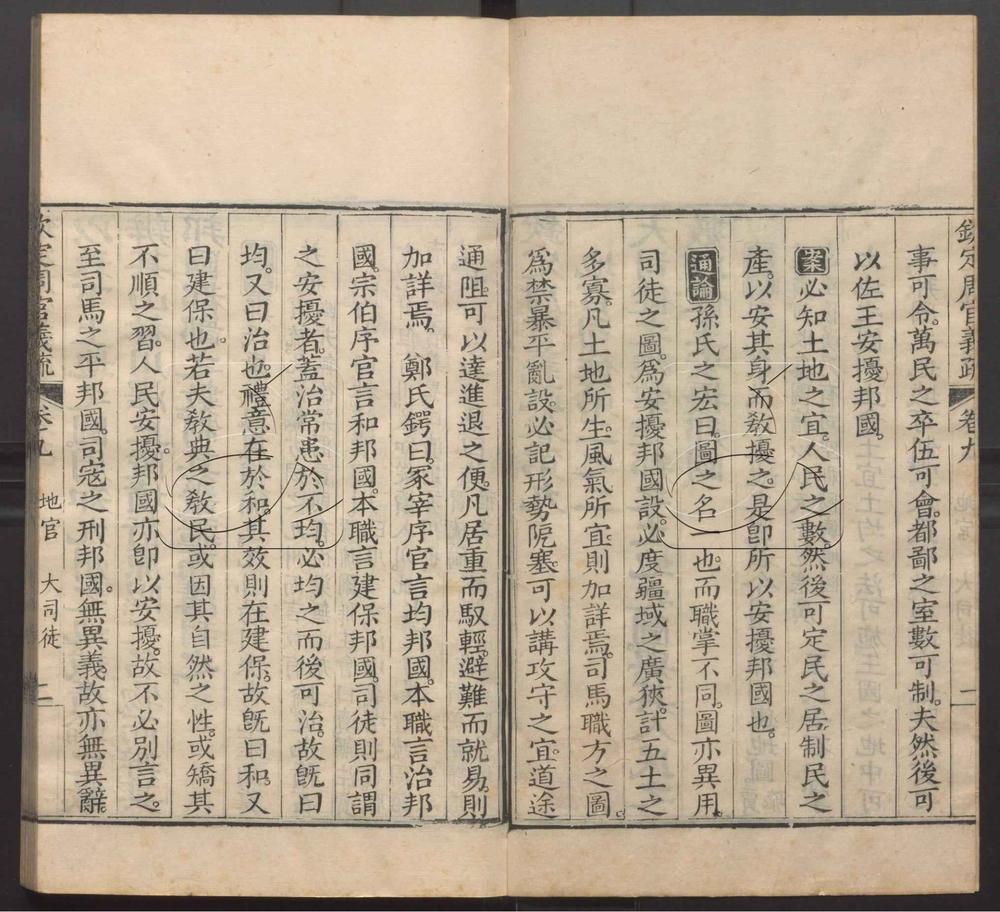 欽定周官義疏 卷九 一
事可令。萬民之卒伍可會。都鄙之室數可制。夫然後可
以佐王安擾邦國。
案必知土地之宜。人民之數。然後可定民之居。制民之
產。以安其身而敎擾之。是卽所以安擾邦國也。
通論孫氏之宏曰。圖之名一也。而職掌不同。圖亦異用。
司徒之圖。爲安擾邦國設。必度疆域之廣狹。計五土之
多寡。凡土地所生。風氣所宜。則加詳焉。司馬職方之圖。
爲禁暴平亂設。必記形勢阨塞。可以講攻守之宜。道途
通阻。可以達進退之便。凡居重而馭輕。避難而就易。則
加詳焉。 鄭氏鍔曰。冢宰序官言均邦國。本職言治邦
國。宗伯序官言和邦國。本職言建保邦國。司徒則同謂
之安擾者。蓋治常患於不均。必均之而後可治。故旣曰
均。又曰治也。禮意在於和。其效則在建保。故旣曰和。又
曰建保也。若夫敎典之敎民。或因其自然之性。或矯其
不順之習。人民安擾。邦國亦卽以安擾。故不必別言之。
至司馬之平邦國。司寇之刑邦國。無異義。故亦無異辭。
欽定周官義疏 卷九 地官 大司徒 二